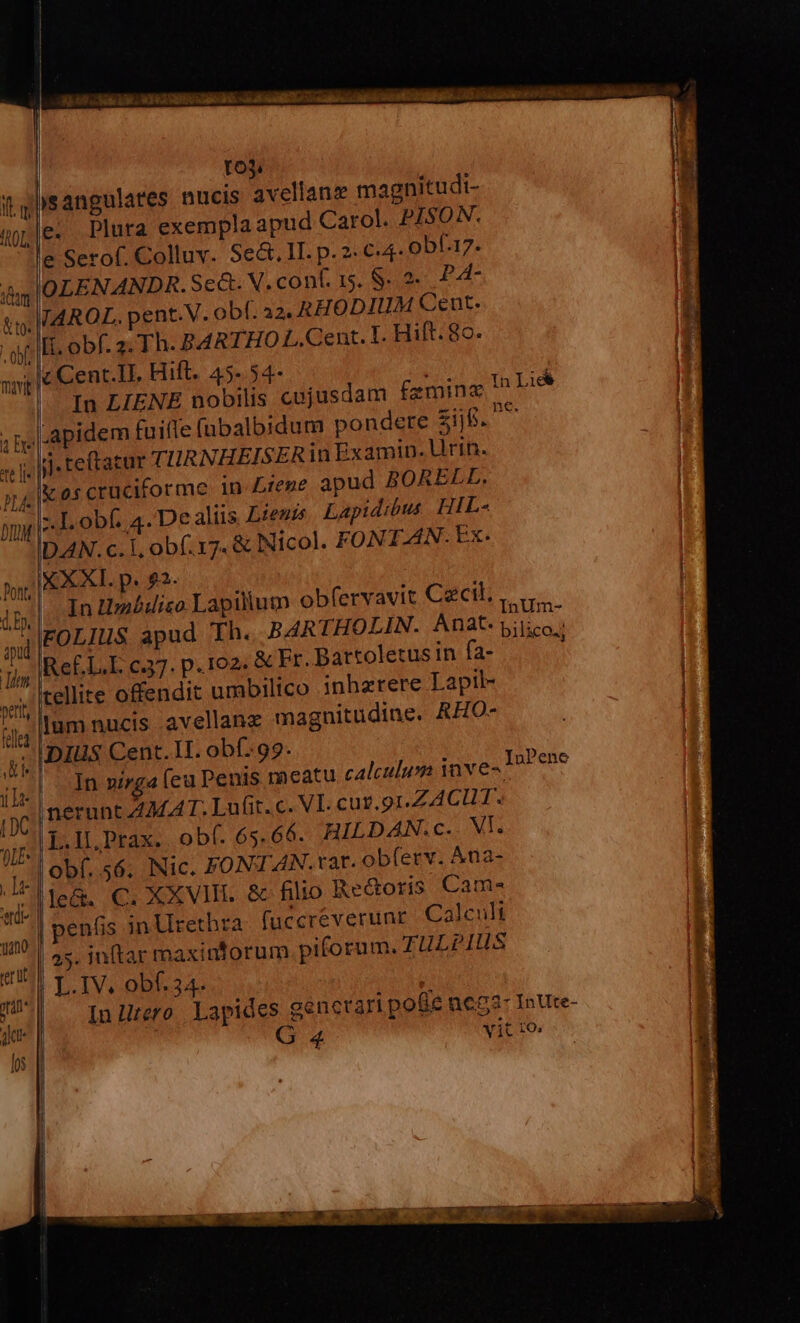 103.
angulares nucis avellanæ magnitudi-
Plura exempla apud Carol. PISON.
Serof. Colluv. Sect. II. p. 2. c. 4. obſ. 17.
OLENANDR. Sect. V. conſ. 15. §. 2. PA-
ROL. pent. V. obſ. 22. RHODIUM Cent.
II. obſ. 2. Th. BARTHOL. Cent. I. Hiſt. 80.
Cent. II. Hiſt. 45. 54.
In LIENE nobilis cujusdam fæminæ
In Lie-
ne.
Lapidem fuiſſe ſubalbidum pondere ʒijß.
teſtatur TURNHEISER in Examin. Urin.
os cruciforme in Liene apud BORELL.
I. obſ. 4. De aliis Lienis Lapidibus HIL-
DAN. c. I, obſ. 17. & Nicol. FONTAN. Ex.
XXXI. p. 92.
In Umbilico Lapillum obſervavit Cæcil.
In Um-
bilico.
FOLIUS apud Th. BARTHOLIN. Anat.
Ref. L. I. c. 37. p. 102. & Fr. Bartoletus in ſa-
tellite offendit umbilico inhærere Lapil-
lum nucis avellanæ magnitudine. RHO-
DIUS Cent. II. obſ. 99.
In virga ſeu Penis meatu calculum inve-
In Pene
nerunt AMAT. Luſit. c. VI. cur. 91. ZACUT.
L. II. Prax. obſ. 65. 66. HILDAN. c. VI.
obſ. 56. Nic. FONTAN. rar. obſerv. Ana-
lect. C. XXVIII. & filio Rectoris Cam-
penſis in Urethra ſuccreverunt Calculi
25. inſtar maximorum piſorum. TULPIUS
L. IV. obſ. 34.
In Utero Lapides generari poſſe nega-
In Ute-
ro.
G 4
vit